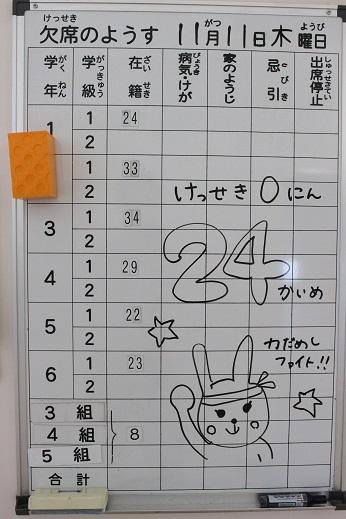 けっせき がつ ようび
欠席のようす 11月11日木曜日
学年 がくねん 学級 がっきゅう 在籍 ざいせき 病気・けが びょうき 家のようじ 忌引 きびき 出席停止 しゅっせきてい
1 1 24
2
1 33
2 けっせき0にん
3 1 34
2
24
4 1 29
2 かいめ
5 1 22
2
6 1 23 カだめし
2 ファイト!!
3 組
4 組 8
5 組
合計